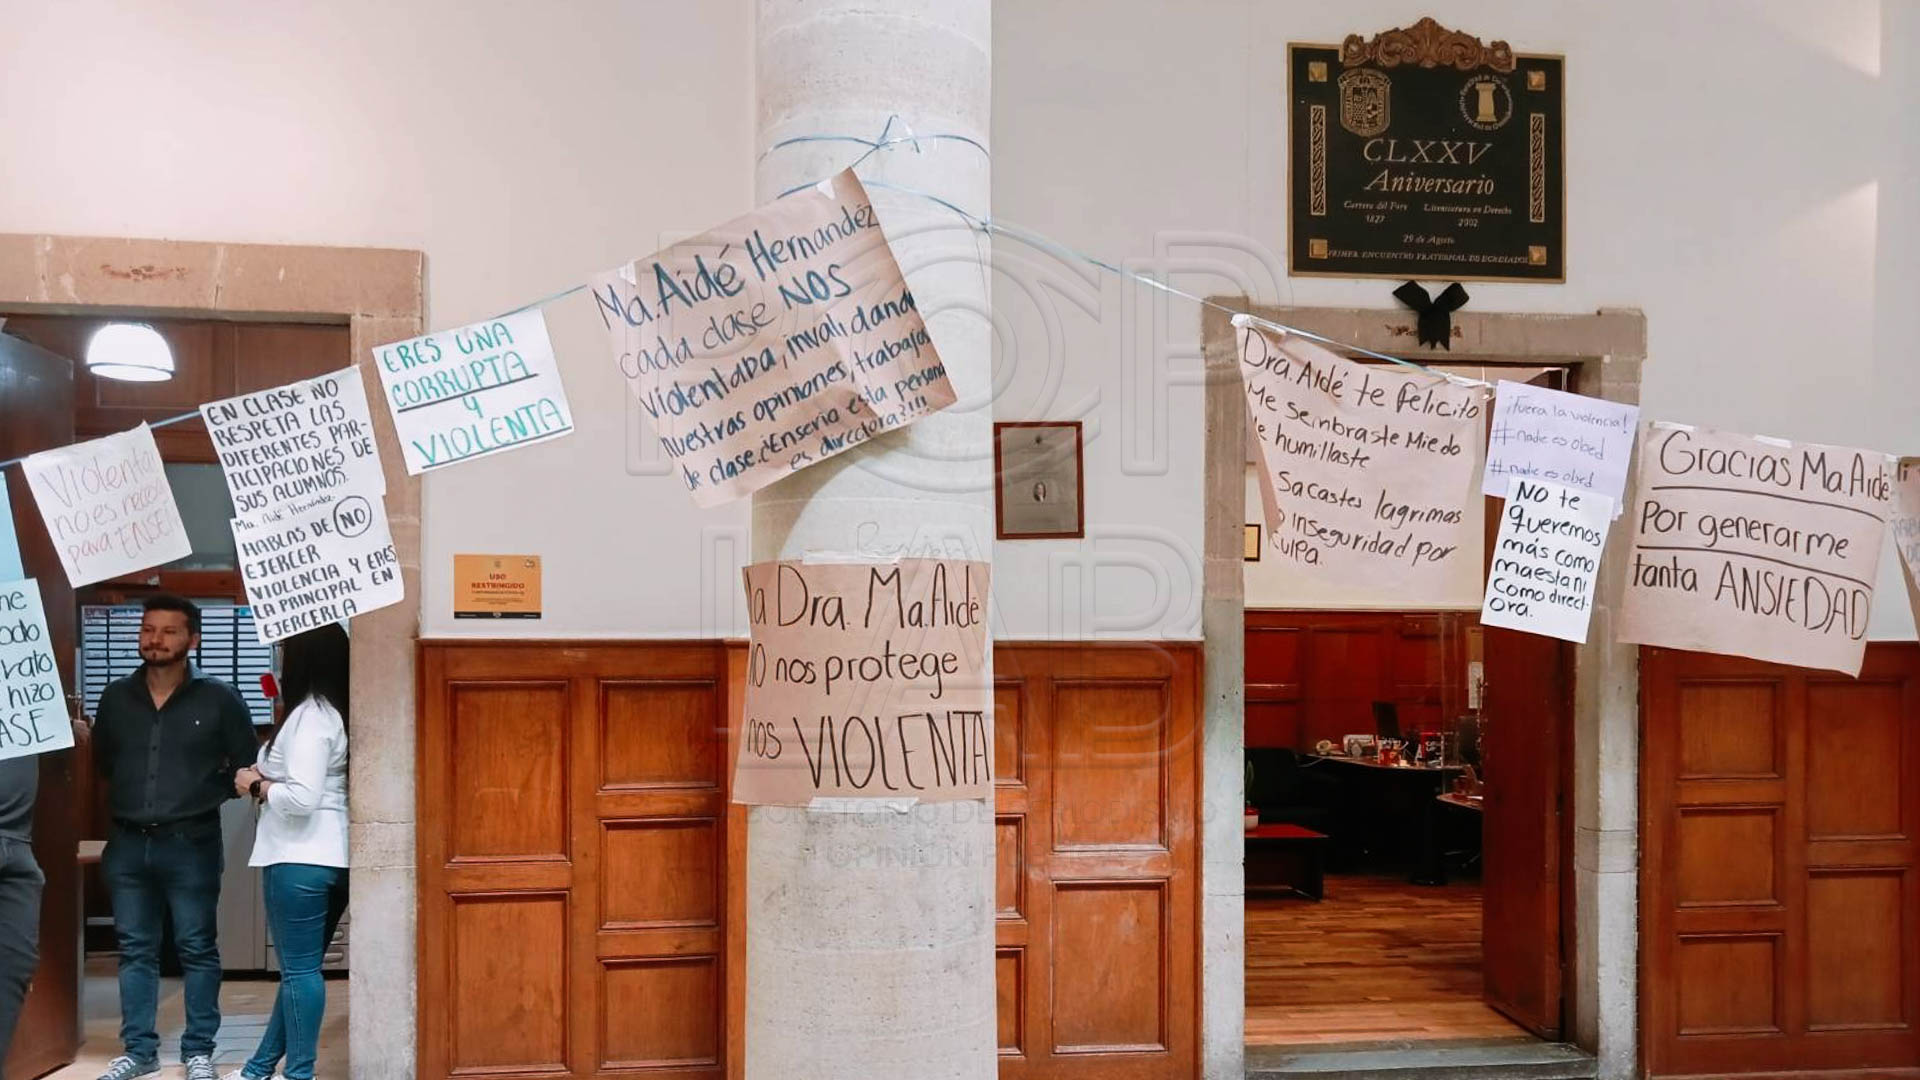 Violentar
no es neces
para ENSEÑ
me
odo
rato
hizo
ASE
EN CLASE NO
RESPETA LAS
DIFERENTES PAR-
TICIPACIONES DE
SUS ALUMNOS.
Ma. Aidé Hernández
HABLAS DE NO
EJERCER
VIOLENCIA Y ERES
LA PRINCIPAL EN
EJERCERLA
ERES UNA
CORRUPTA
y
VIOLENTA
USO
RESTRINGIDO
Ma. Aidé Hernandéz
cada clase NOS
violentaba, invalidando
nuestras opiniones, trabajos
de clase. ¿Enserio esta persona
es directora?!!!
la Dra. Ma. Aidé
NO nos protege
nos VIOLENTA
CLXXV
Aniversario
Carrera del Foro Licenciatura en Derecho
1827 2002
29 de Agosto
PRIMER ENCUENTRO FRATERNAL DE EGRESADOS
Dra. Aidé te felicito
Me sembraste Miedo
e humillaste
Sacastes lagrimas
inseguridad por
culpa.
¡Fuera la violencia!
#nadie es obed
#nadie es obed
NO te
queremos
más como
maestani
como direct-
ora.
Gracias Ma. Aidé
por generarme
tanta ANSIEDAD
POP
LAB
LABORATORIO DE PERIODISMO
Y OPINIÓN PÚBLICA